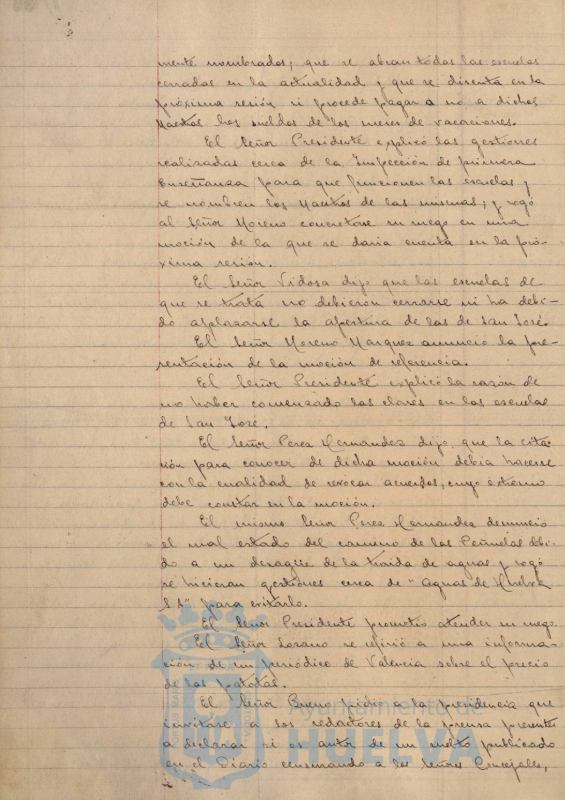 mente nombrados; que se abran todas las escuelas
cerradas en la actualidad y que se discuta en la
próxima sesión si procede pagar o no a dichos
Maestros los sueldos de los meses de vacaciones.
El Señor Presidente explicó las gestiones
realizadas cerca de la Inspección de primera
Enseñanza para que funcionen las escuelas y
se nombren los Maestros de las mismas; y rogó
al Señor Moreno concretase su ruego en una
moción de la que se daria cuenta en la pró-
xima sesión.
El Señor Vidosa dijo que las escuelas de
que se trata no debieron cerrarse ni ha debi-
do aplazarse la apertura de las de San José.
El Señor Moreno Marquez anunció la pre-
sentación de la moción de referencia.
El Señor Presidente explicó la razón de
no haber comenzado las clases en las escuelas
de San José.
El Señor Perez Hernandez dijo, que la cita-
ción para conocer de dicha moción debia hacerse
con la cualidad de revocar acuerdos, cuyo extremo
debe constar en la moción.
El mismo Señor Perez Hernandez denunció
el mal estado del camino de las Peñuelas debi-
do a un desagüe de la traida de aguas y rogó
se hicieran gestiones cerca de "Aguas de Huelva
S.A" para evitarlo.
El Señor Presidente prometió atender su ruego.
El Señor Lozano se refirió a una informa-
ción de un periódico de Valencia sobre el precio
de las patatas.
El Señor Bueno pidió a la presidencia que
invitase a los redactores de la prensa presentes
a declarar si es autor de un suelto publicado
en el Diario censurando a los Señores Concejales,
Ayuntamiento de
HUELVA